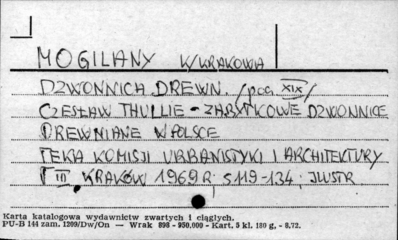 MOGILANY W KRAKOWA
DZWONNICA DREWN. /poč. XIX/
CZESŁAW THULLIE - ZABYTKOWE DZWONNICE
DREWNIANE W POLSCE
TEKA KOMISJI URBANISTYKI I ARCHITEKTURY
T III KRAKÓW 1969 R. S 119-134, ILUSTR
Karta katalogowa wydawnictw zwartych i ciągłych.
PU-B 144 zam. 1209/Dw/On — Wrak 898 - 950.000 - Kart. 5 kl. 180 g. - 8.72.